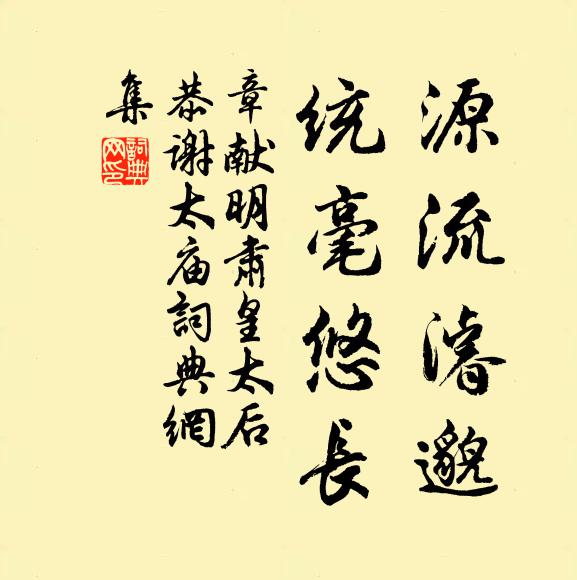 源流濬邈
统毫悠長
章献明肃皇太后
恭谢太庙詞典網
集
詞典
网印